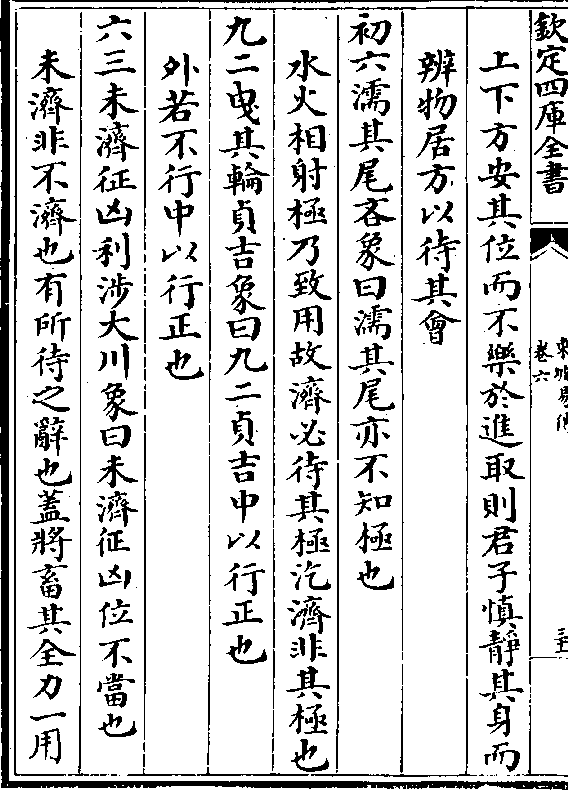 欽定四庫全書
卷六
上下方安其位而不樂於進取則君子慎靜其身而
辨物居方以待其會
初六濡其尾吝象曰濡其尾亦不知極也
水火相射極乃致用故濟必待其極汔濟非其極也
九二曳其輪貞吉象曰九二貞吉中以行正也
外若不行中以行正也
六三未濟征凶利涉大川象曰未濟征凶位不當也
未濟非不濟也有所待之辭也蓋將畜其全力一用